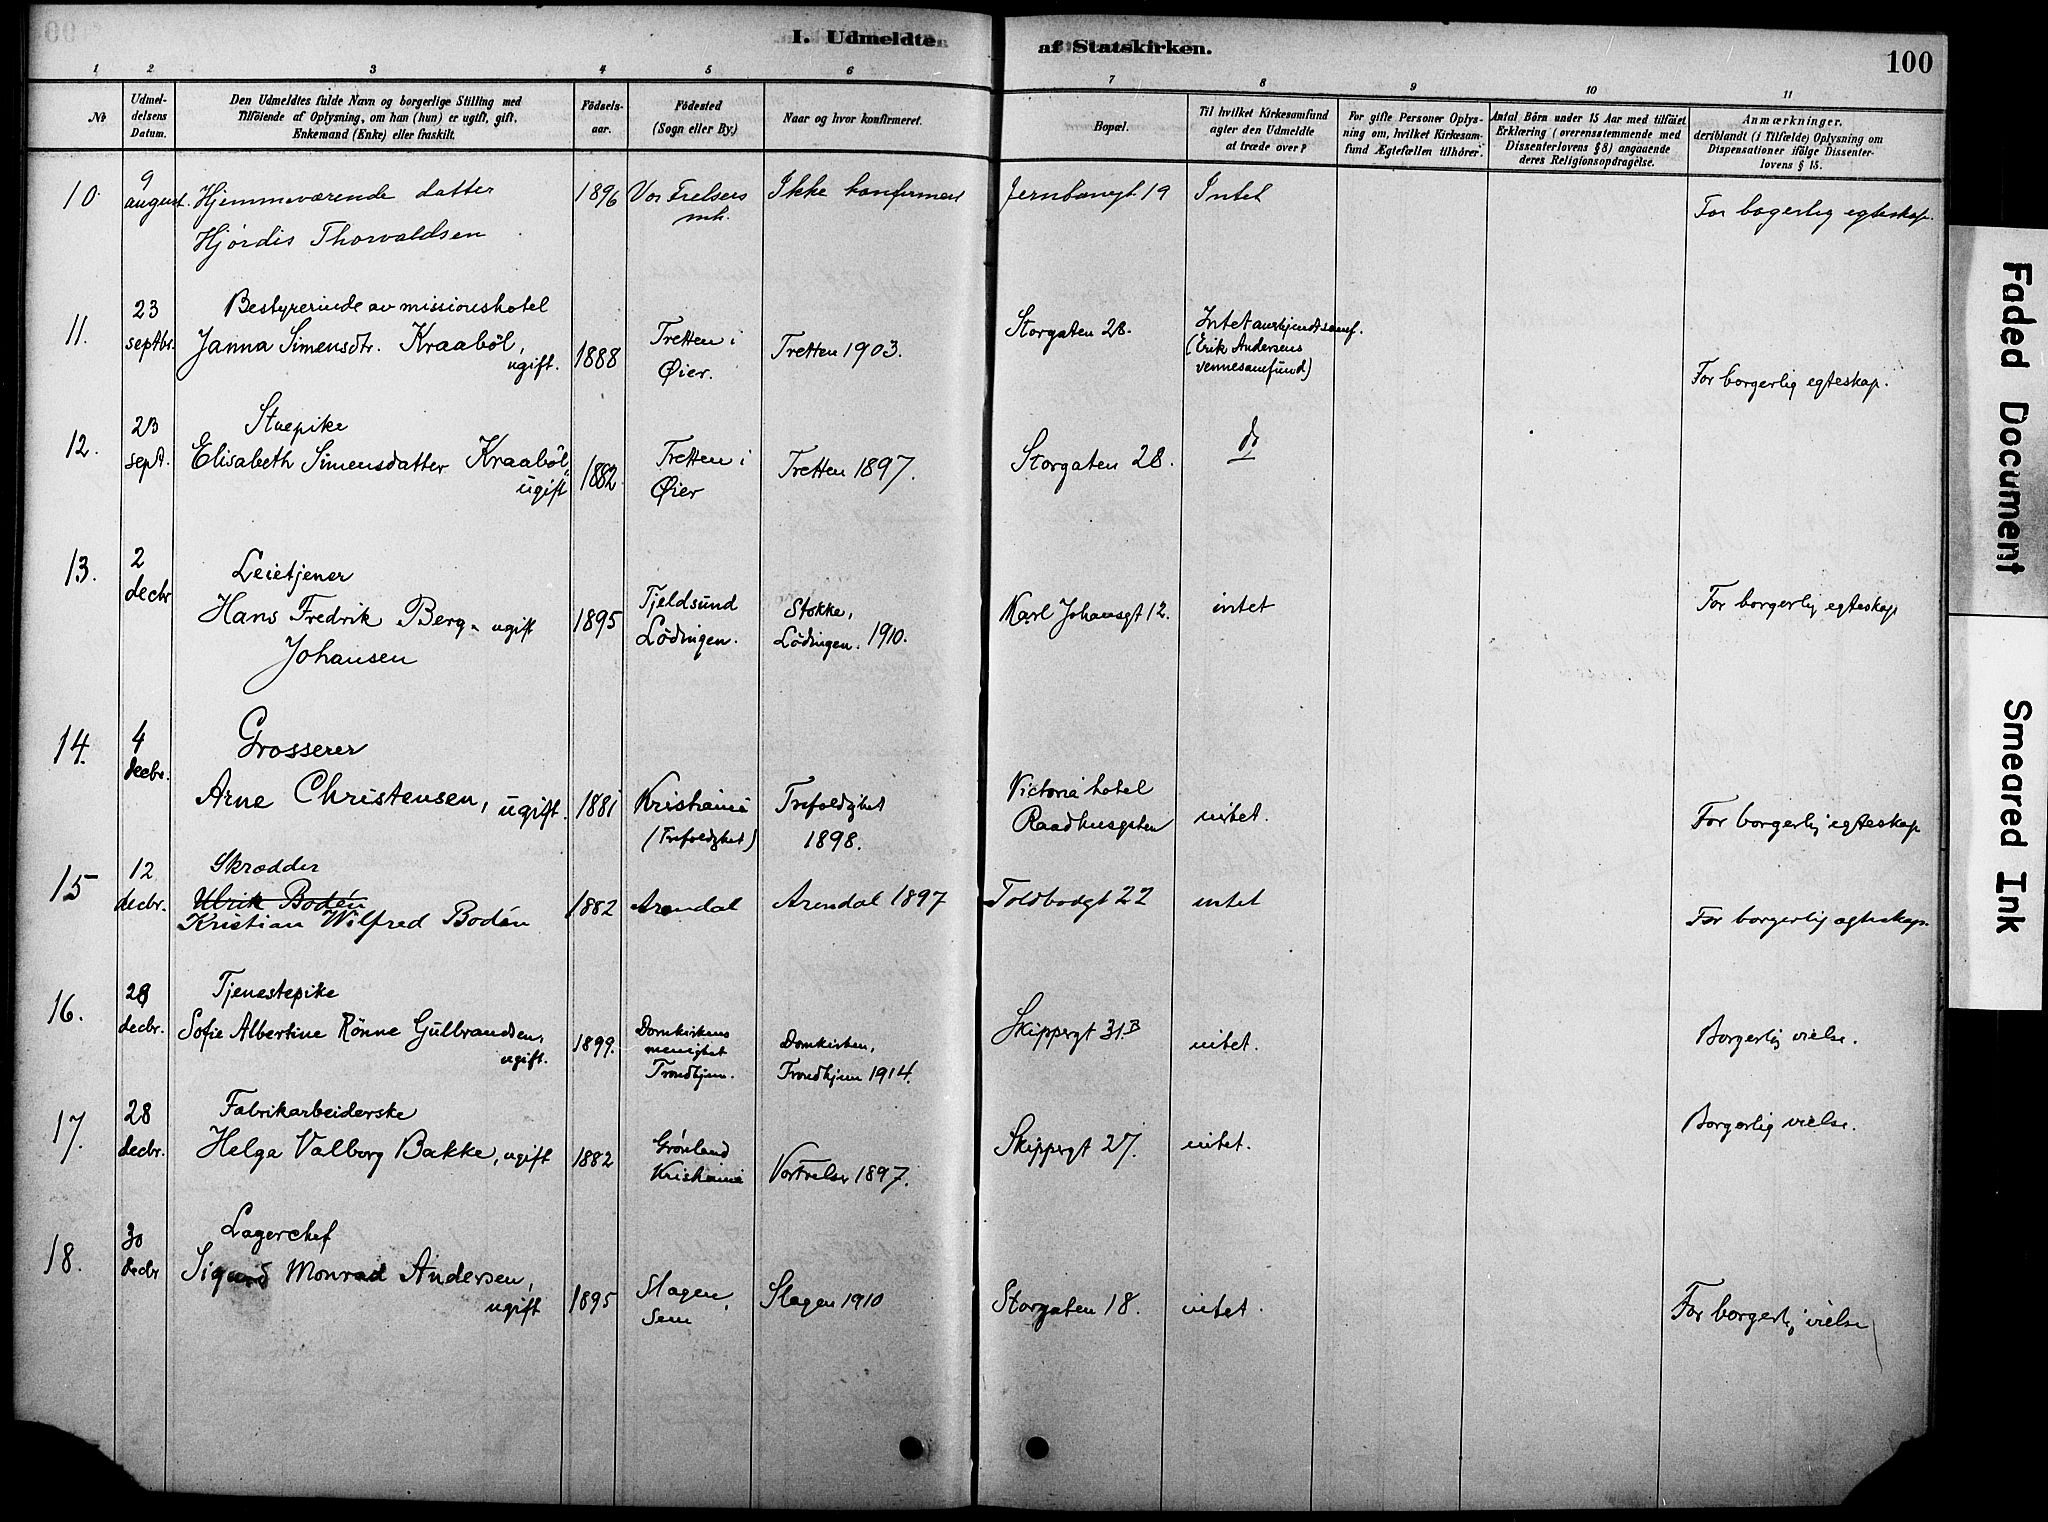 I. Udmeldte af Statskirken.
100
1 2 3 4 5 6 7 8 9 10 11
No
Udmel-
delsens
Datum.
Den Udmeldtes fulde Navn og borgerlige Stilling med
Tilföiende af Oplysning, om han (hun) er ugift, gift,
Enkemand (Enke) eller fraskilt.
Födsels-
aar.
Födested
(Sogn eller By.)
Naar og hvor konfirmeret.
Bopæl.
Til hvilket Kirkesamfund
agter den Udmeldte
at træde over?
For gifte Personer Oplys-
ning om, hvilket Kirkesam-
fund Ægtefællen tilhörer.
Antal Börn under 15 Aar med tilföiet
Erklæring (overensstemmende med
Dissenterlovens § 8) angaaende
deres Religionsopdragelse.
Anmærkninger,
deriblandt (i Tilfælde) Oplysning om
Dispensationer ifölge Dissenter-
lovens § 15.
10.
9
august.
Hjemmeværende datter
Hjördis Thorvaldsen
1896
Vor Frelsers
mh.
Ikke konfirmert
Jernbanegt 19
Intet
For bogerlig egteskap.
11.
23
septbr.
Bestyrerinde av missionshotel
Janna Simensdtr. Kraaböl,
ugift.
1888
Tretten i
Øier.
Tretten 1903.
Storgaten 28.
Intet anerkjendt samf.
(Erik Andersens
vennesamfund)
For borgerlig egteskap.
12.
23
sept.
Stuepike
Elisabeth Simensdatter Kraaböl,
ugift
1882
Tretten i
Øier
Tretten 1897.
Storgaten 28.
do
13.
2
decbr
Leietjener
Hans Fredrik Berg- ugift
Johansen
1895
Tjeldsund
Lödingen.
Stokke,
Lödingen. 1910.
Karl Johansgt 12.
intet
For borgerlig egteskap
14.
4
decbr.
Grosserer
Arne Christensen, ugift.
1881
Kristiania
(Trefoldighet)
Trefoldighet
1898.
Victoria hotel
Raadhusgaten
intet.
For borgerlig egteskap
15
12
decbr.
Skrædder
Ulrik Bodén
Kristian Wilfred Bodén
1882
Arendal
Arendal 1897
Toldbodgt 22
intet
For borgerlig egteskap.
16.
28
decbr.
Tjenestepike
Sofie Albertine Rönne Gulbrandsen,
ugift.
1899.
Domkirkens
menighet
Trondhjem.
Domkirken,
Trondhjem 1914.
Skippergt 31B
intet.
Borgerlig vielse.
17.
28
decbr.
Fabrikarbeiderske
Helga Valborg Bakke, ugift
1882
Grönland
Kristiania
Vor Frelser 1897.
Skippergt 27.
intet.
Borgerlig vielse.
18.
30
decbr
Lagerchef
Sigurd Monrad Andersen,
ugift
1895
Slagen,
Sem
Slagen 1910
Storgaten 18.
intet.
For borgerlig vielse
Faded Document
Smeared Ink